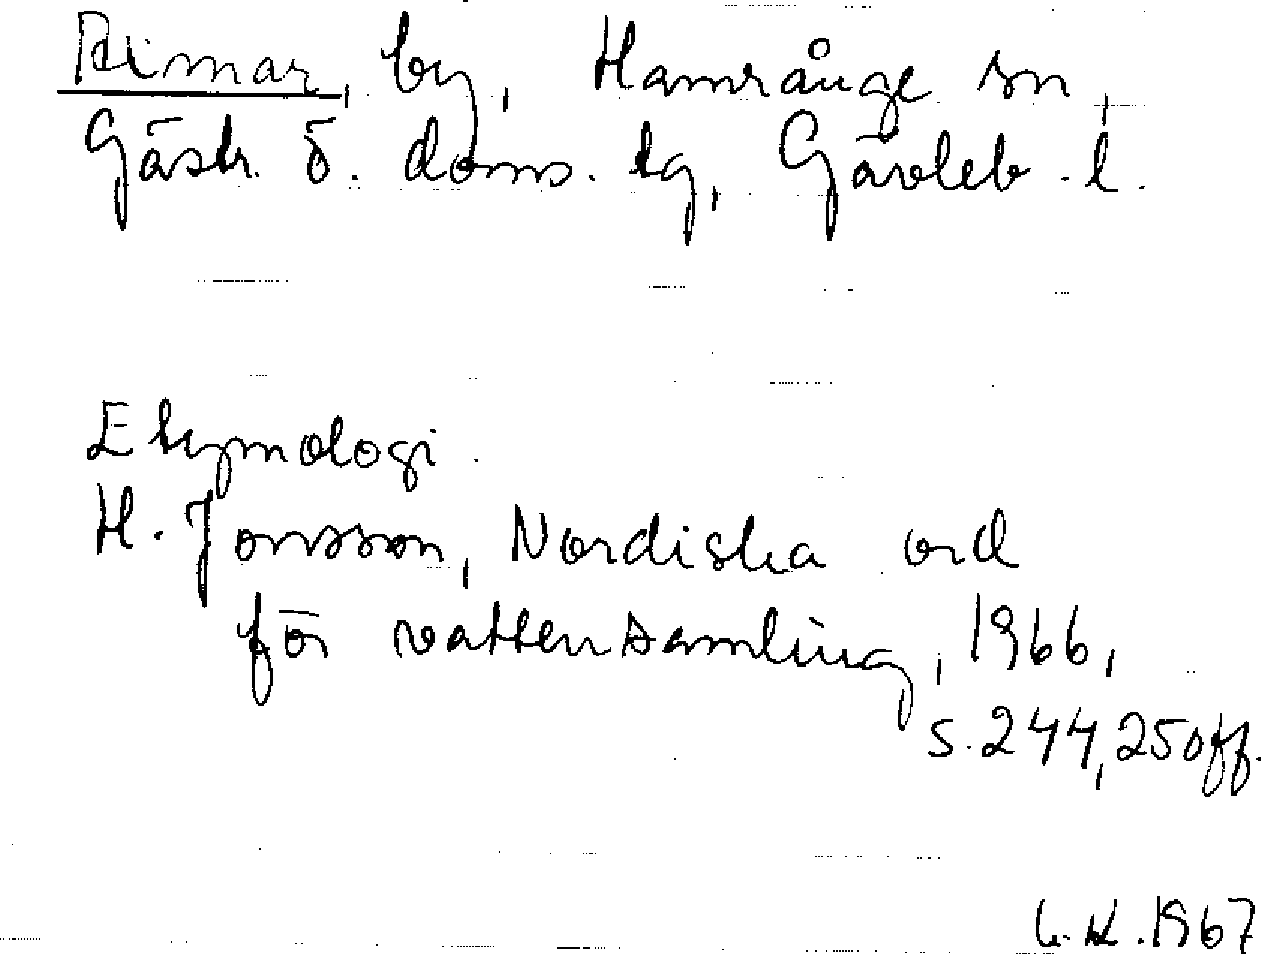 Rimar, by, Hamrånge sn,
Gästr. ö. doms. tg, Gävleb. l.
Etymologi.
H. Jonsson, Nordiska ord
för vattensamling, 1966,
s. 244, 250 ff.
1967